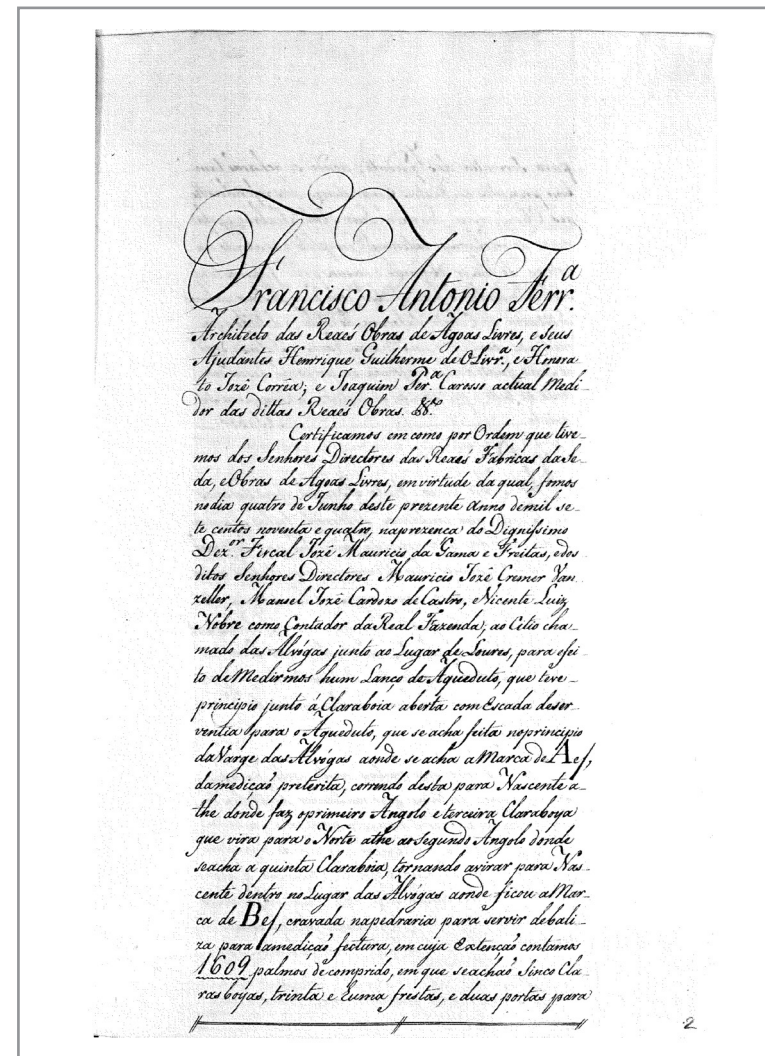 Francisco Antonio Ferr.ª
Architecto das Reaes Obras de Agoas Livres, e seus
Ajudantes Henrrique Guilherme de OLivr.ª, e Honora
to Jozé Corrêa; e Joaquim Per.ª Carosso actual Medi-
dor das dittas Reaes Obras. &ª
Certificamos em como por Ordem que tive-
mos dos Senhores Directores das Reaes Fabricas da Se-
da, e Obras de Agoas Livres, em virtude da qual, fomos
no dia quatro de Junho deste prezente anno de mil se-
te centos noventa e quatro, na prezenca do Dignissimo
Dez.or Fiscal Jozé Mauricio da Gama e Freitas, e dos
ditos Senhores Directores Mauricio Jozé Cremer Van
zeller, Manoel Jozé Cardozo de Castro, e Nicente Luiz
Nobre como Contador da Real Fazenda, ao Citio cha-
mado das Alvógas junto ao Lugar de Loures, para efei-
to de Medirmos hum Lanço de Aqueduto, que teve-
principio junto á Claraboia aberta com Escada deser-
ventia para o Aqueduto, que se acha feita no principio
da Varge das Alvógas aonde se acha a Marca de Aef,
da mediçaõ preterita, correndo desta para Nascente a-
the donde faz o primeiro Angolo e terceira Claraboya
que vira para o Norte athe ao segundo Angolo donde
se acha a quinta Claraboia, tornando a virar para Nas-
cente dentro no Lugar das Alvógas aonde ficou a Mar-
ca de Bef, cravada na pedraria para servir de bali-
za para a mediçaõ fectura, em cuja Extençaõ contámos
1609 palmos de comprido, em que se achaõ Sinco Cla-
rasboyas, trinta e huma frestas, e duas portas para
2